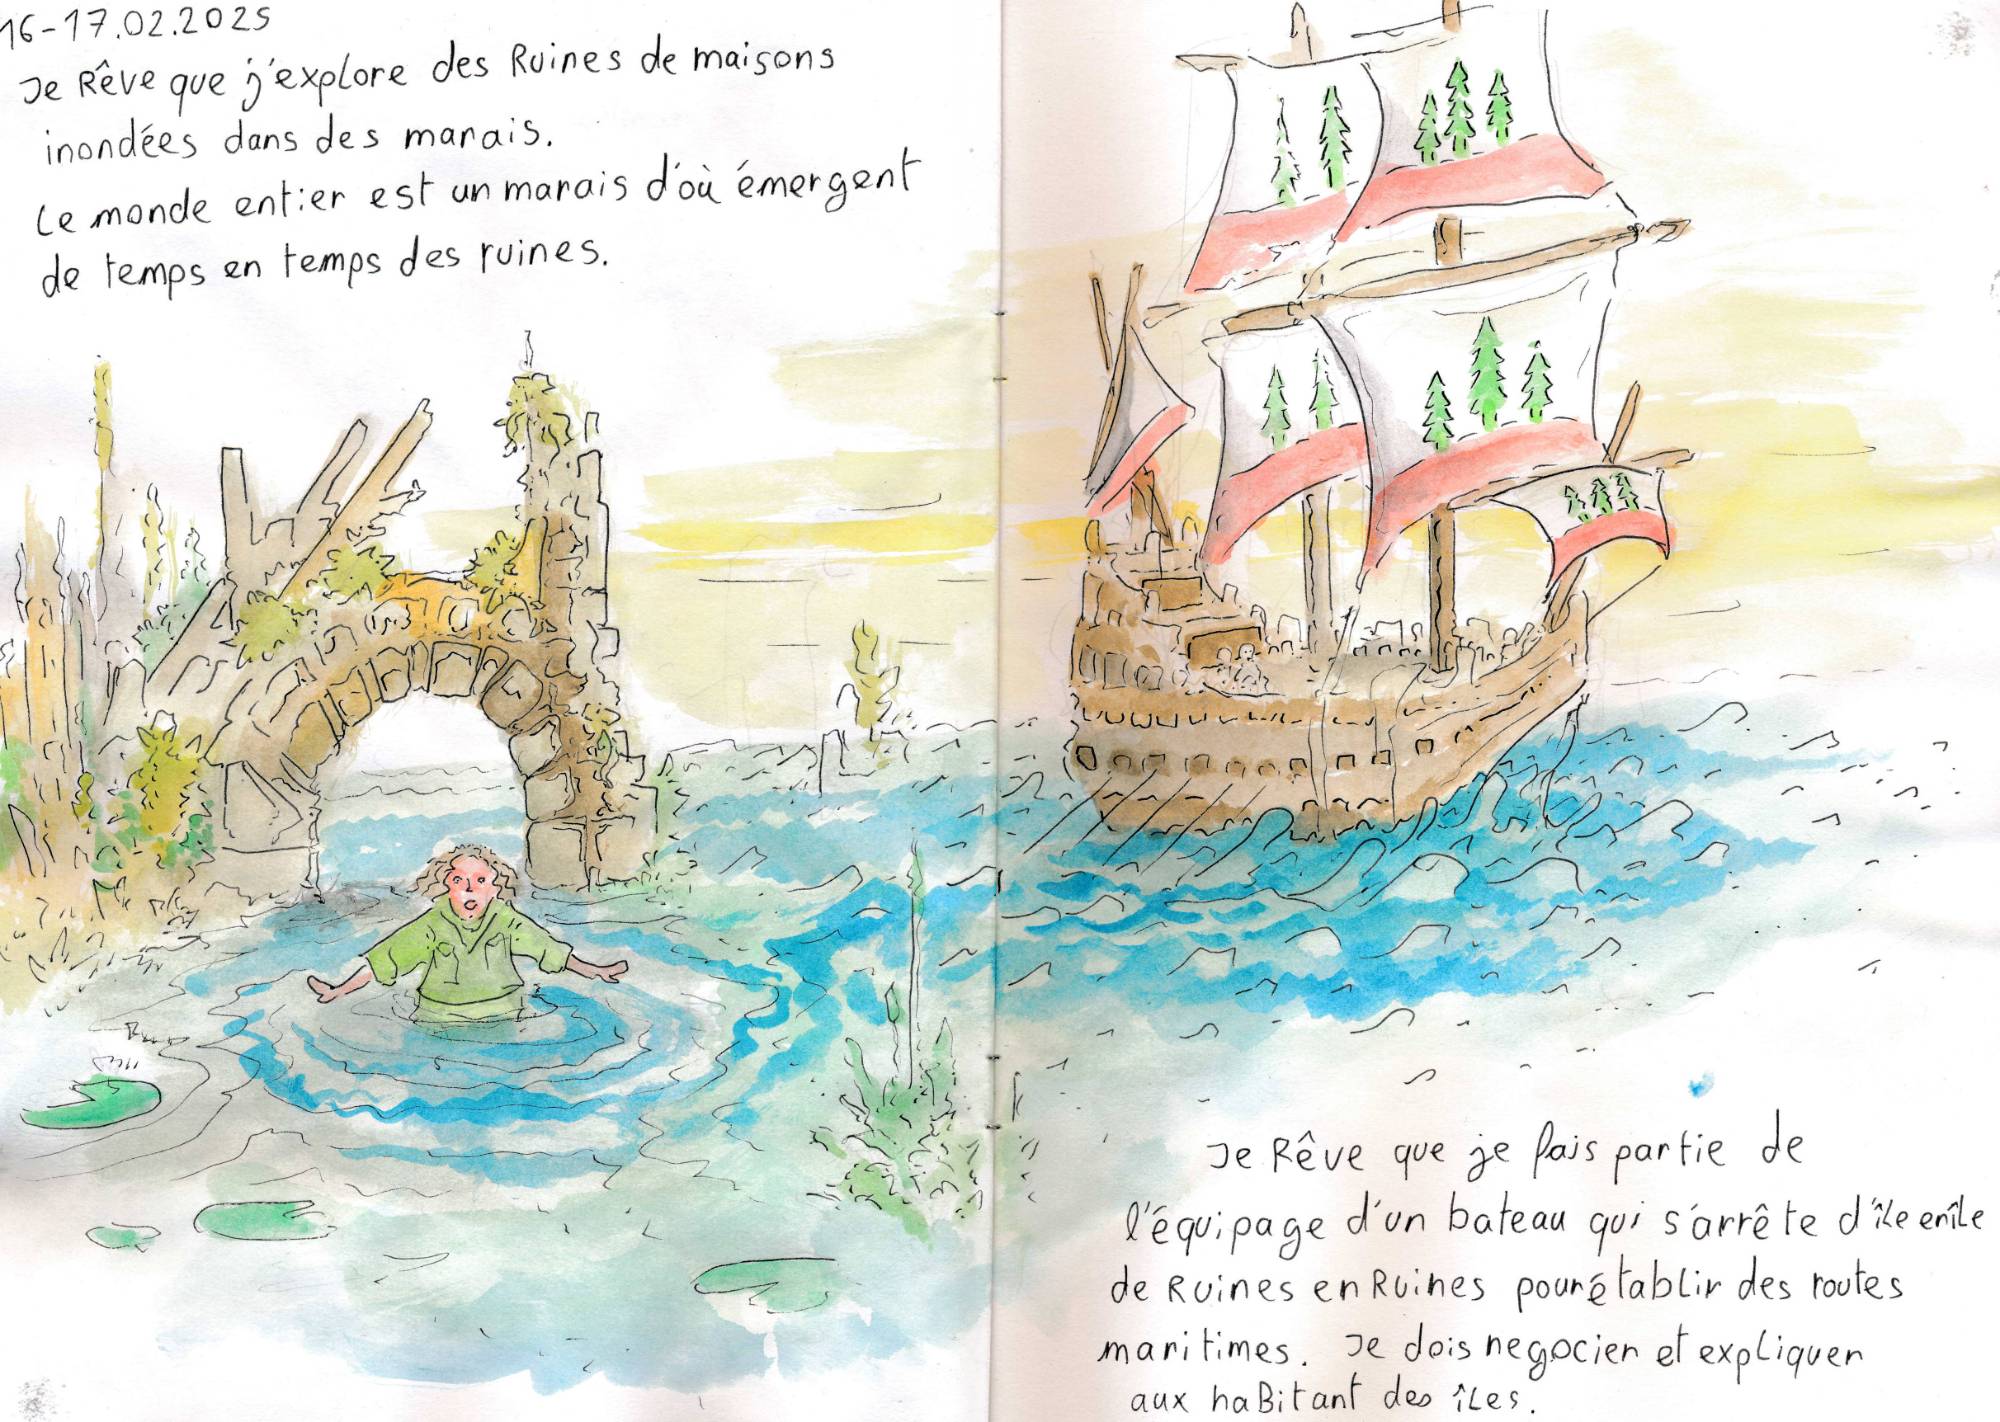 16-17.02.2025
Je Rêve que j'explore des Ruines de maisons
inondées dans des marais.
Le monde entier est un marais d'où émergent
de temps en temps des ruines.
Je Rêve que je fais partie de
l'équipage d'un bateau qui s'arrête d'île en île
de Ruines en Ruines pour établir des routes
maritimes. Je dois negocier et expliquer
aux haBitant des îles.